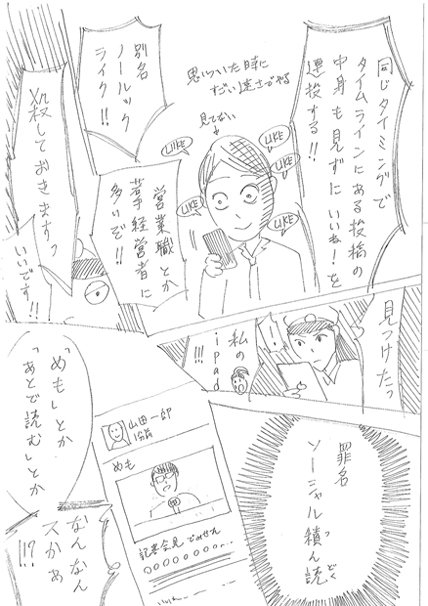 同じタイミングで
タイムラインにある投稿の
中身も見ずにいいね!を
連投する!!
思いついた時に
すごい速さでやる
見てない
LIKE
LIKE
LIKE
LIKE
LIKE
LIKE
別名
ノールック
ライク!!
営業職とか
経営者に
多いぞ!!
殺しておきますっ
いいです!!
見つけたっ
私の
ipad
!!!
罪名
ソーシャル積ん読
つ
どく
山田一郎
めも
記者会見
「めも」とか
「あとで読む」とか
なんなん
スかぁ
!!?